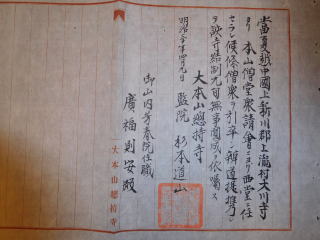 當夏越中國上新川郡上瀧村大川寺
ヨリ本山僧堂衆請會ニヨリ西堂ニ任
セラレ候條僧衆ヲ引卒シ辨道提携シ
テ該寺結制允可無事圓成ヲ依囑ス
大本山總持寺
明治三年四月九日 監院 杉本道山
御山内芳春院住職
廣福則安殿
大本山總持寺